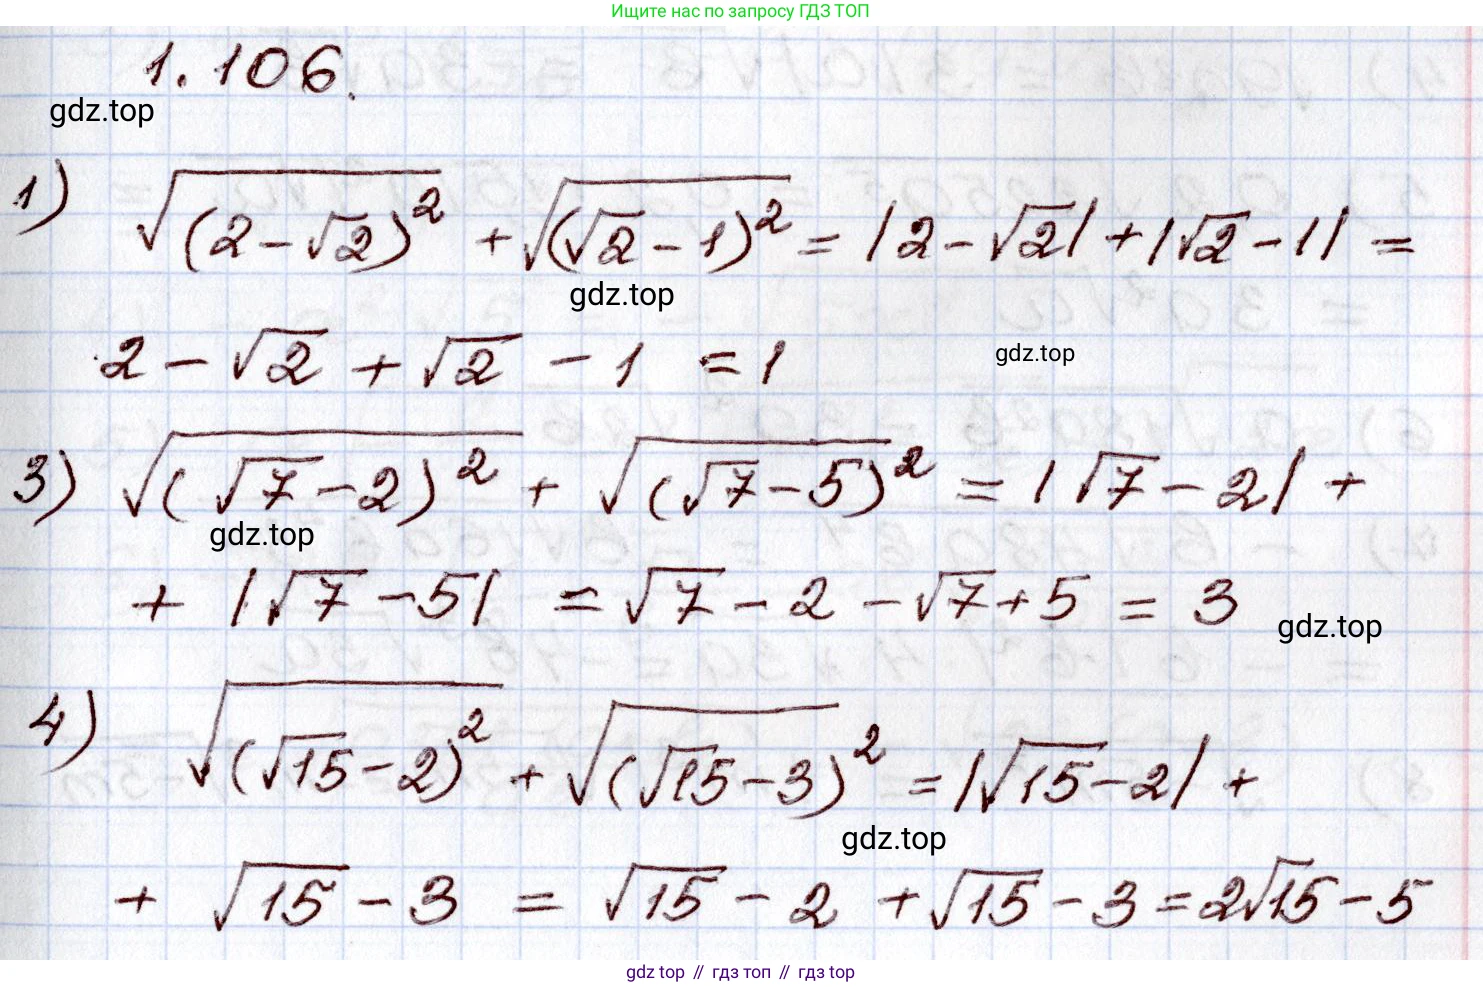 Ищите нас по запросу ГДЗ ТОП
1.106.
gdz.top
1) √(2-√2)² + √(√2-1)² = |2-√2| + |√2-1| =
gdz.top
2 - √2 + √2 - 1 = 1
gdz.top
3) √(√7-2)² + √(√7-5)² = |√7-2| +
gdz.top
+ |√7-5| = √7-2-√7+5 = 3
gdz.top
4) √(√15-2)² + √(√15-3)² = |√15-2| +
gdz.top
+ √15-3 = √15-2+√15-3=2√15-5
gdz top // гдз топ // gdz top